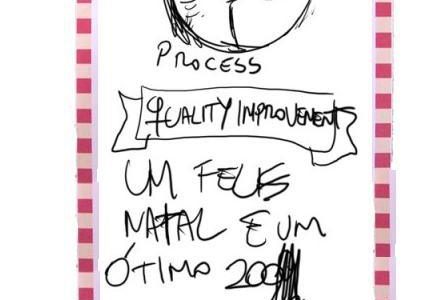 PROCESS
QUALITY IMPROVEMENT
UM FELIS
NATAL E UM
ÓTIMO 200